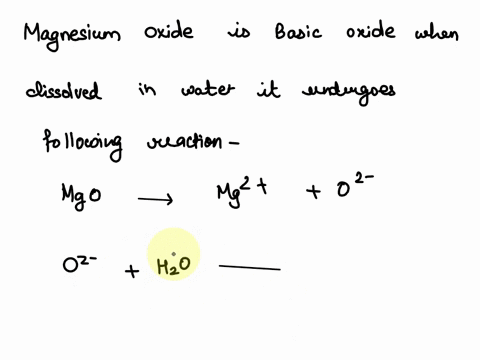 Magnesium oxide is Basic oxide when
dissolved in water it undergoes
following reaction -
MgO → Mg²⁺ + O²⁻
O²⁻ + H₂O —